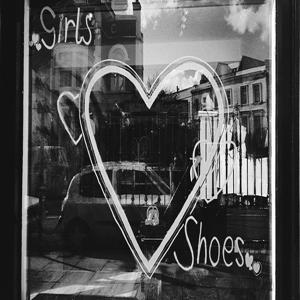 Girls
Shoes